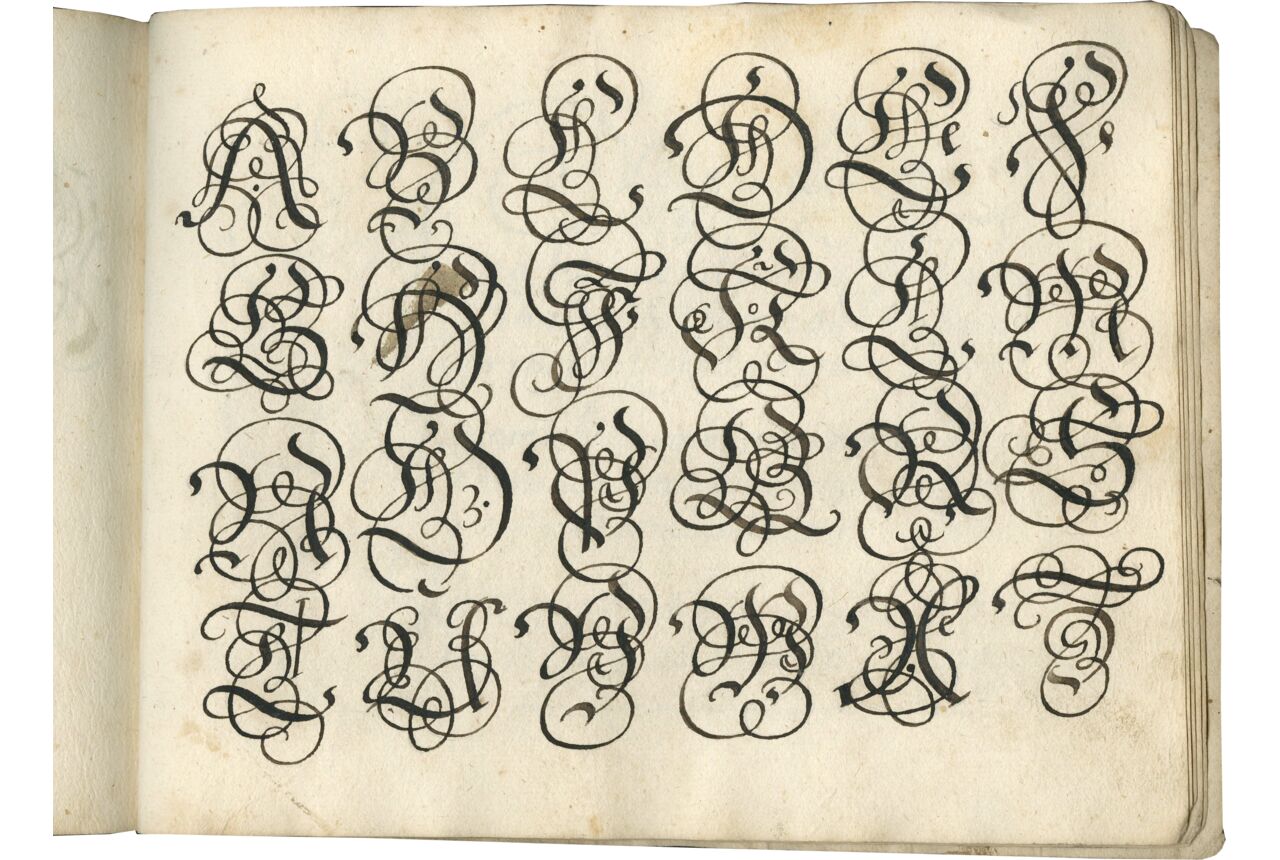 A B C D E F
G H I K L M
N O P Q R S
T U V W X Z